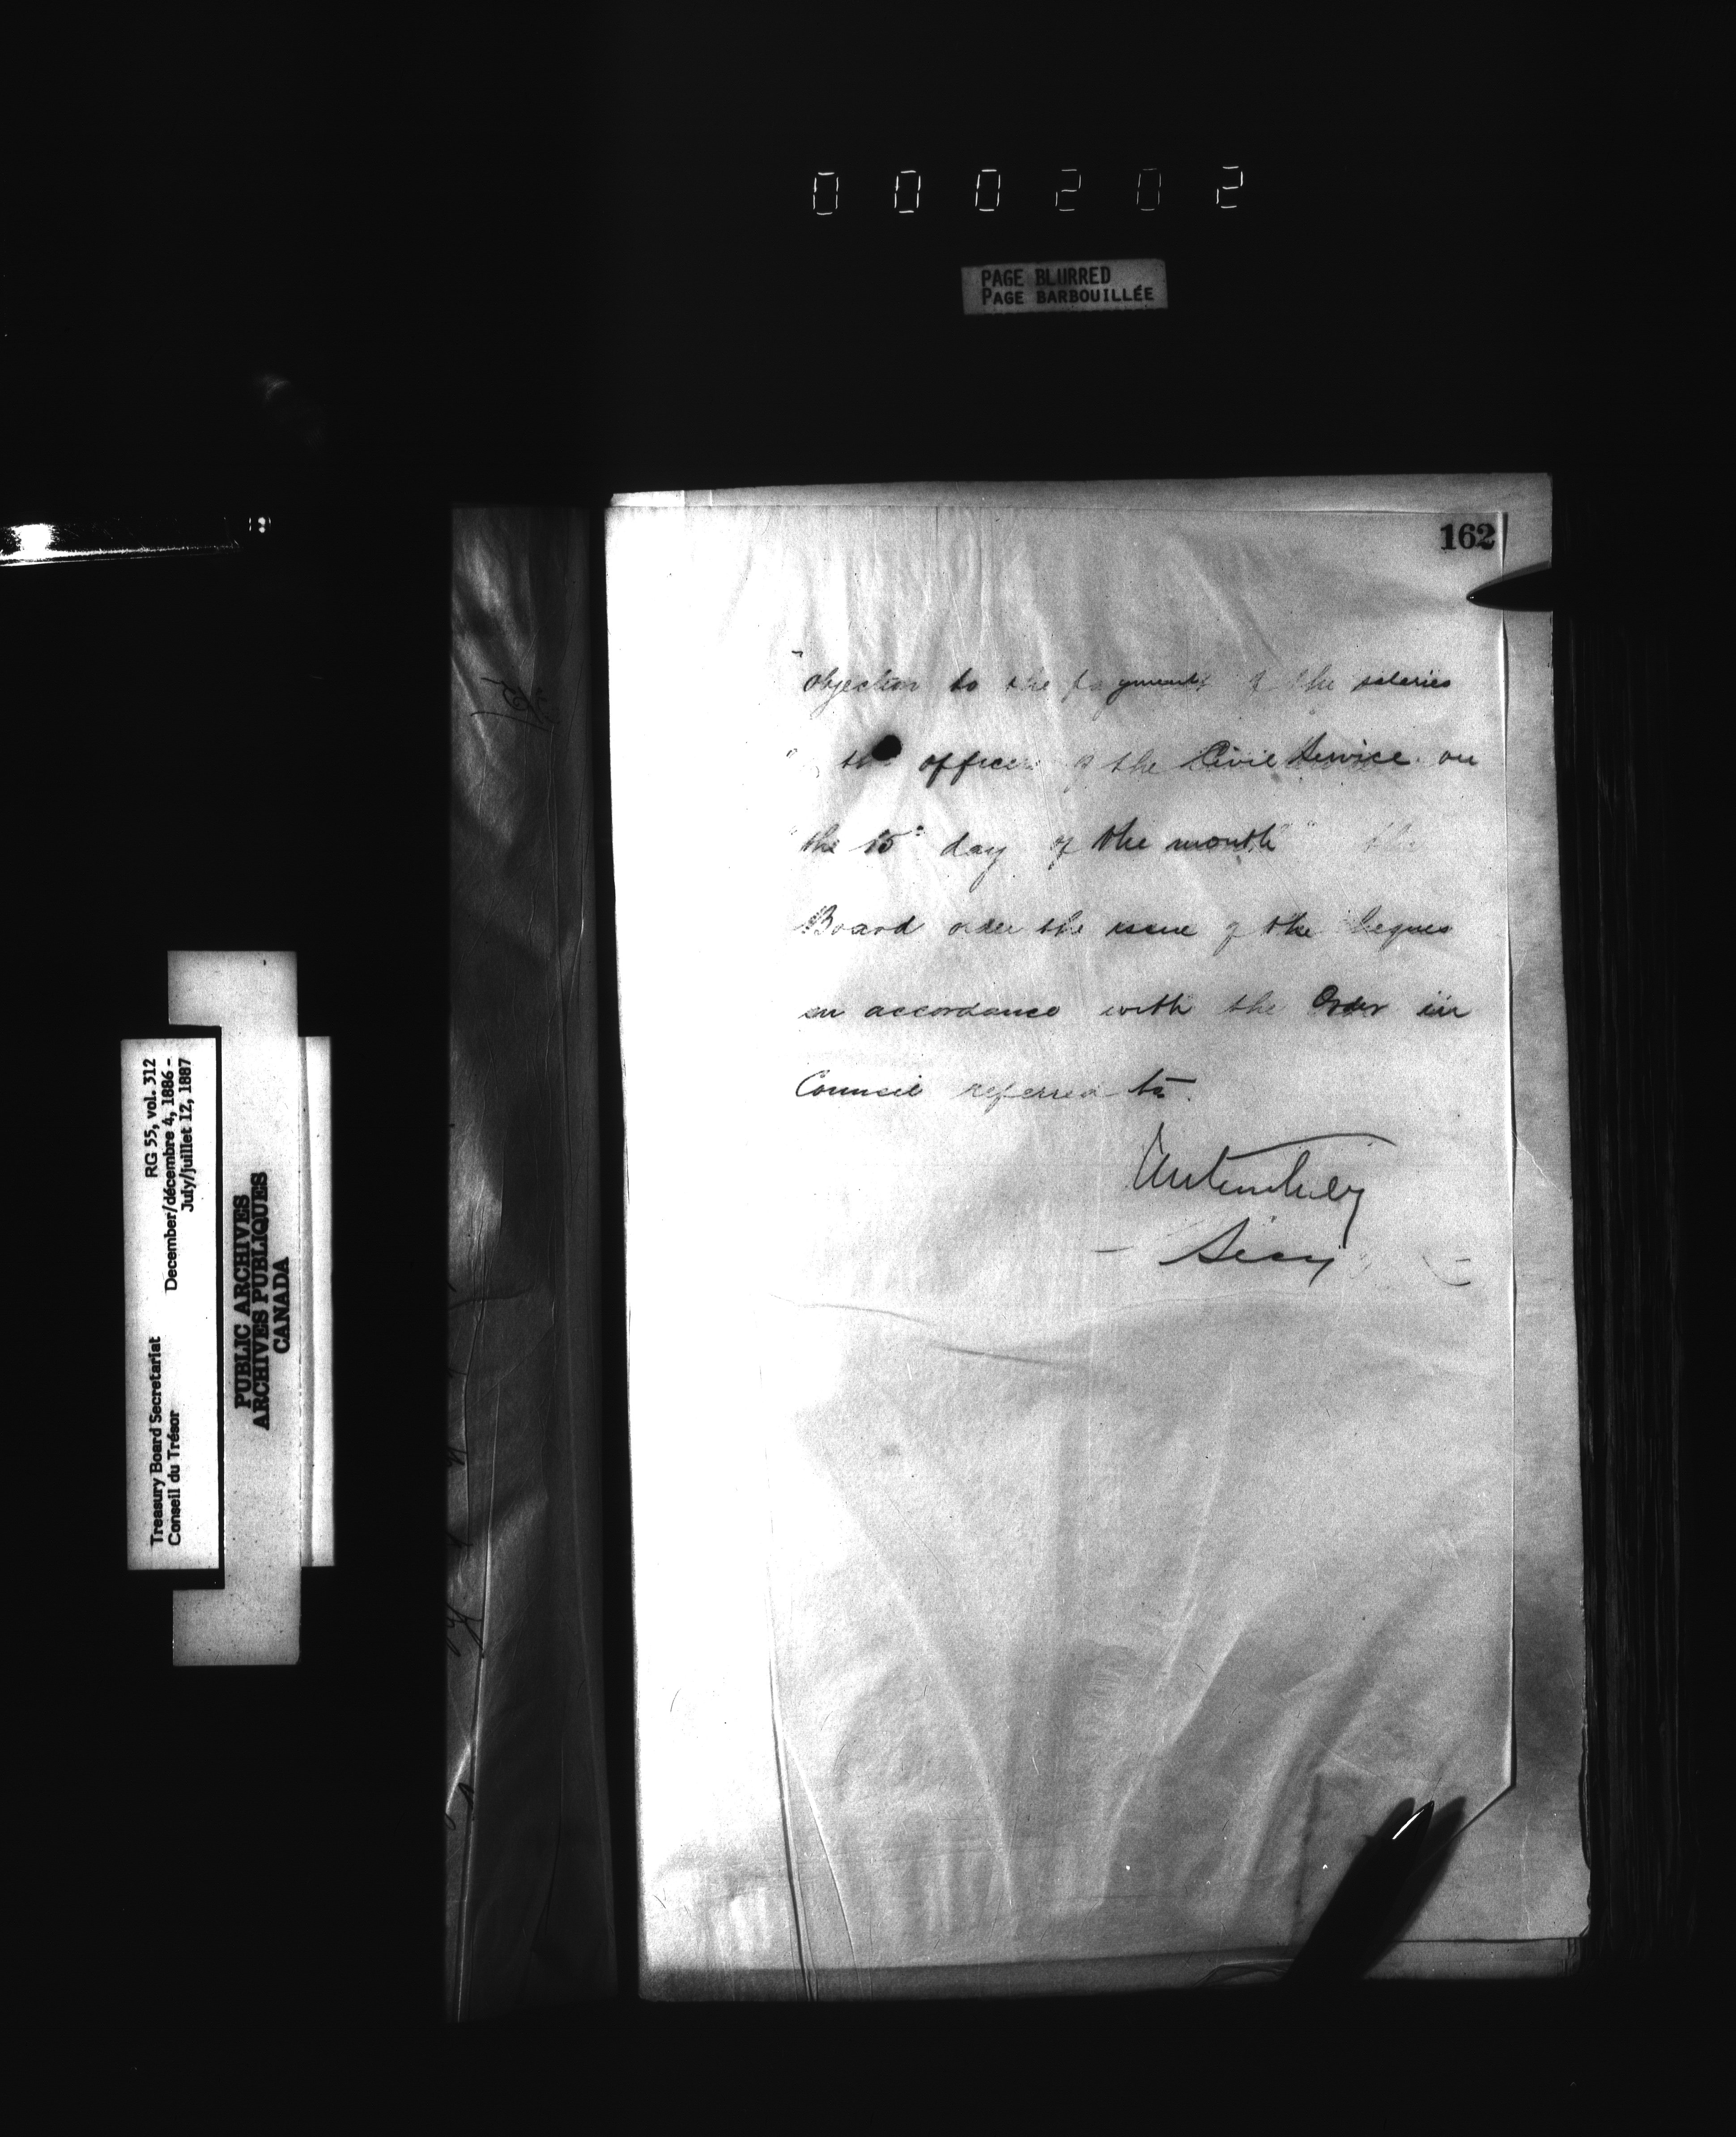 000202
PAGE BLURRED
PAGE BARBOUILLÉE
162
"objection to the payment of the salaries
" the officers of the Civil Service on
"the 15th day of the month" the
Board order the issue of the cheques
in accordance with the Order in
Council referred to.
Secy
Treasury Board Secretariat RG 55, vol. 312
Conseil du Trésor December/décembre 4, 1886 -
July/juillet 12, 1887
PUBLIC ARCHIVES
ARCHIVES PUBLIQUES
CANADA